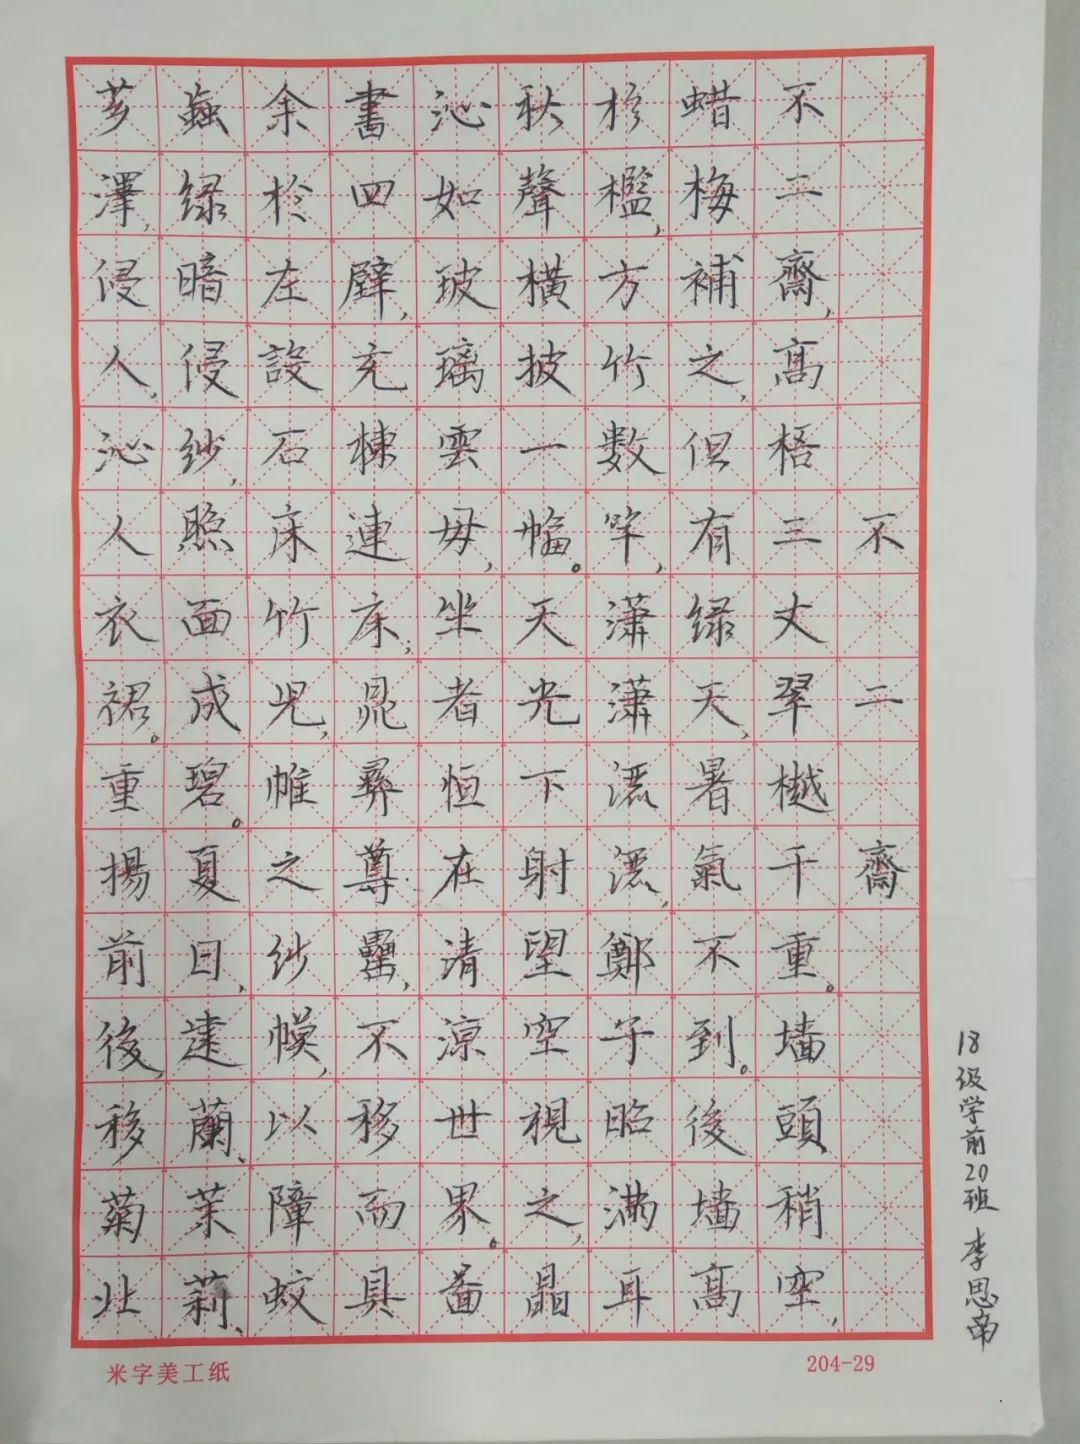 不二齋
不二齋,髙梧三丈翠樾千重。墙頭稍空,
蜡梅補之,但有绿天,暑氣不到。後墙髙
於檻,方竹数竿,潇潇洒洒,鄭子昭满耳
秋聲横披一幅。天光下射望空視之,晶
沁如玻璃雲母,坐者恒在清凉世界。啚
書四壁,充棟連床;鼎彝尊罍,不移而具
余於左設石床竹儿,帷之纱幙,以障蚊
蝱绿暗侵纱,照面成碧。夏日,建蘭、茉莉、
芗澤,侵人,沁人衣裾。重揚前後,移菊北
18级学前20班 李思南
米字美工纸
204-29